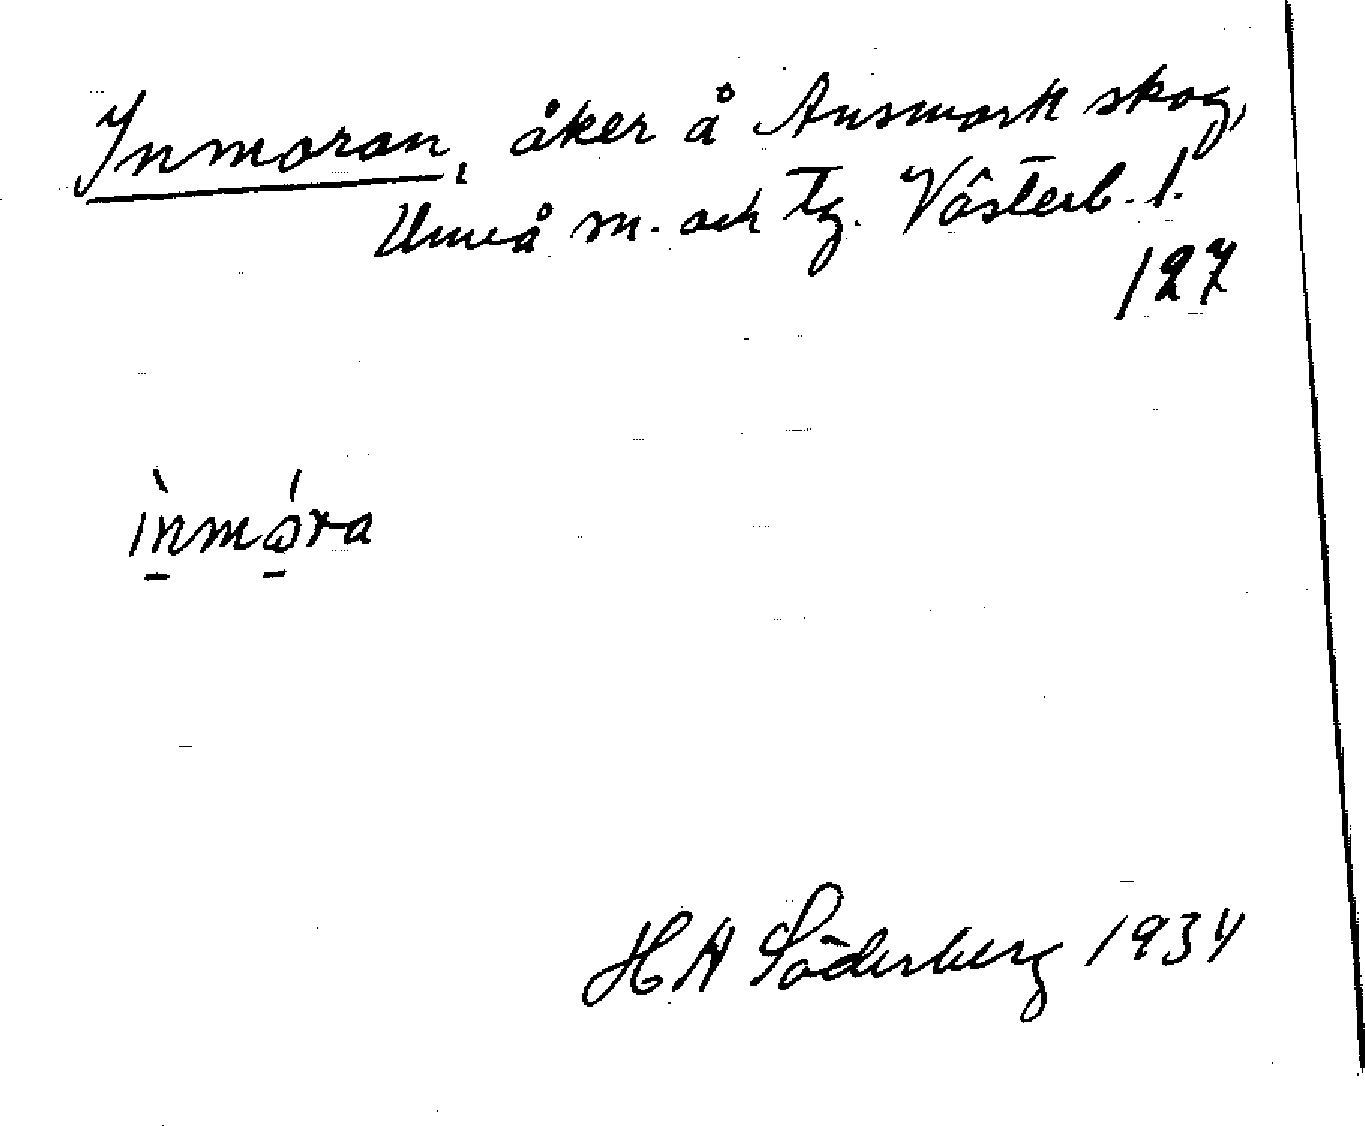 Inmoran, åker å Ansmark skog,
Umeå m. och tg. Västerb. l.
127
ìnmǿra
H A Söderberg 1934